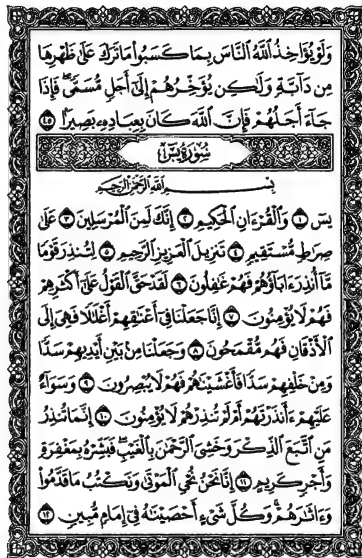 وَلَوْ يُؤَاخِذُ اللَّهُ النَّاسَ بِمَا كَسَبُوا مَا تَرَكَ عَلَىٰ ظَهْرِهَا
مِن دَآبَّةٍ وَلَٰكِن يُؤَخِّرُهُمْ إِلَىٰ أَجَلٍ مُّسَمًّى ۖ فَإِذَا
جَآءَ أَجَلُهُمْ فَإِنَّ اللَّهَ كَانَ بِعِبَادِهِ بَصِيرًا ٤٥
سُورَةُ يسٓ
بِسْمِ اللَّهِ الرَّحْمَٰنِ الرَّحِيمِ
يسٓ ١ وَالْقُرْءَانِ الْحَكِيمِ ٢ إِنَّكَ لَمِنَ الْمُرْسَلِينَ ٣ عَلَىٰ
صِرَاطٍ مُّسْتَقِيمٍ ٤ تَنزِيلَ الْعَزِيزِ الرَّحِيمِ ٥ لِتُنذِرَ قَوْمًا
مَّآ أُنذِرَ ءَابَآؤُهُمْ فَهُمْ غَٰفِلُونَ ٦ لَقَدْ حَقَّ الْقَوْلُ عَلَىٰٓ أَكْثَرِهِمْ
فَهُمْ لَا يُؤْمِنُونَ ٧ إِنَّا جَعَلْنَا فِىٓ أَعْنَٰقِهِمْ أَغْلَٰلًا فَهِىَ إِلَى
الْأَذْقَانِ فَهُم مُّقْمَحُونَ ٨ وَجَعَلْنَا مِنۢ بَيْنِ أَيْدِيهِمْ سَدًّا
وَمِنْ خَلْفِهِمْ سَدًّا فَأَغْشَيْنَٰهُمْ فَهُمْ لَا يُبْصِرُونَ ٩ وَسَوَآءٌ
عَلَيْهِمْ ءَأَنذَرْتَهُمْ أَمْ لَمْ تُنذِرْهُمْ لَا يُؤْمِنُونَ ١٠ إِنَّمَا تُنذِرُ
مَنِ اتَّبَعَ الذِّكْرَ وَخَشِىَ الرَّحْمَٰنَ بِالْغَيْبِ ۖ فَبَشِّرْهُ بِمَغْفِرَةٍ
وَأَجْرٍ كَرِيمٍ ١١ إِنَّا نَحْنُ نُحْىِ الْمَوْتَىٰ وَنَكْتُبُ مَا قَدَّمُوا
وَءَاثَٰرَهُمْ ۚ وَكُلَّ شَىْءٍ أَحْصَيْنَٰهُ فِىٓ إِمَامٍ مُّبِينٍ ١٢